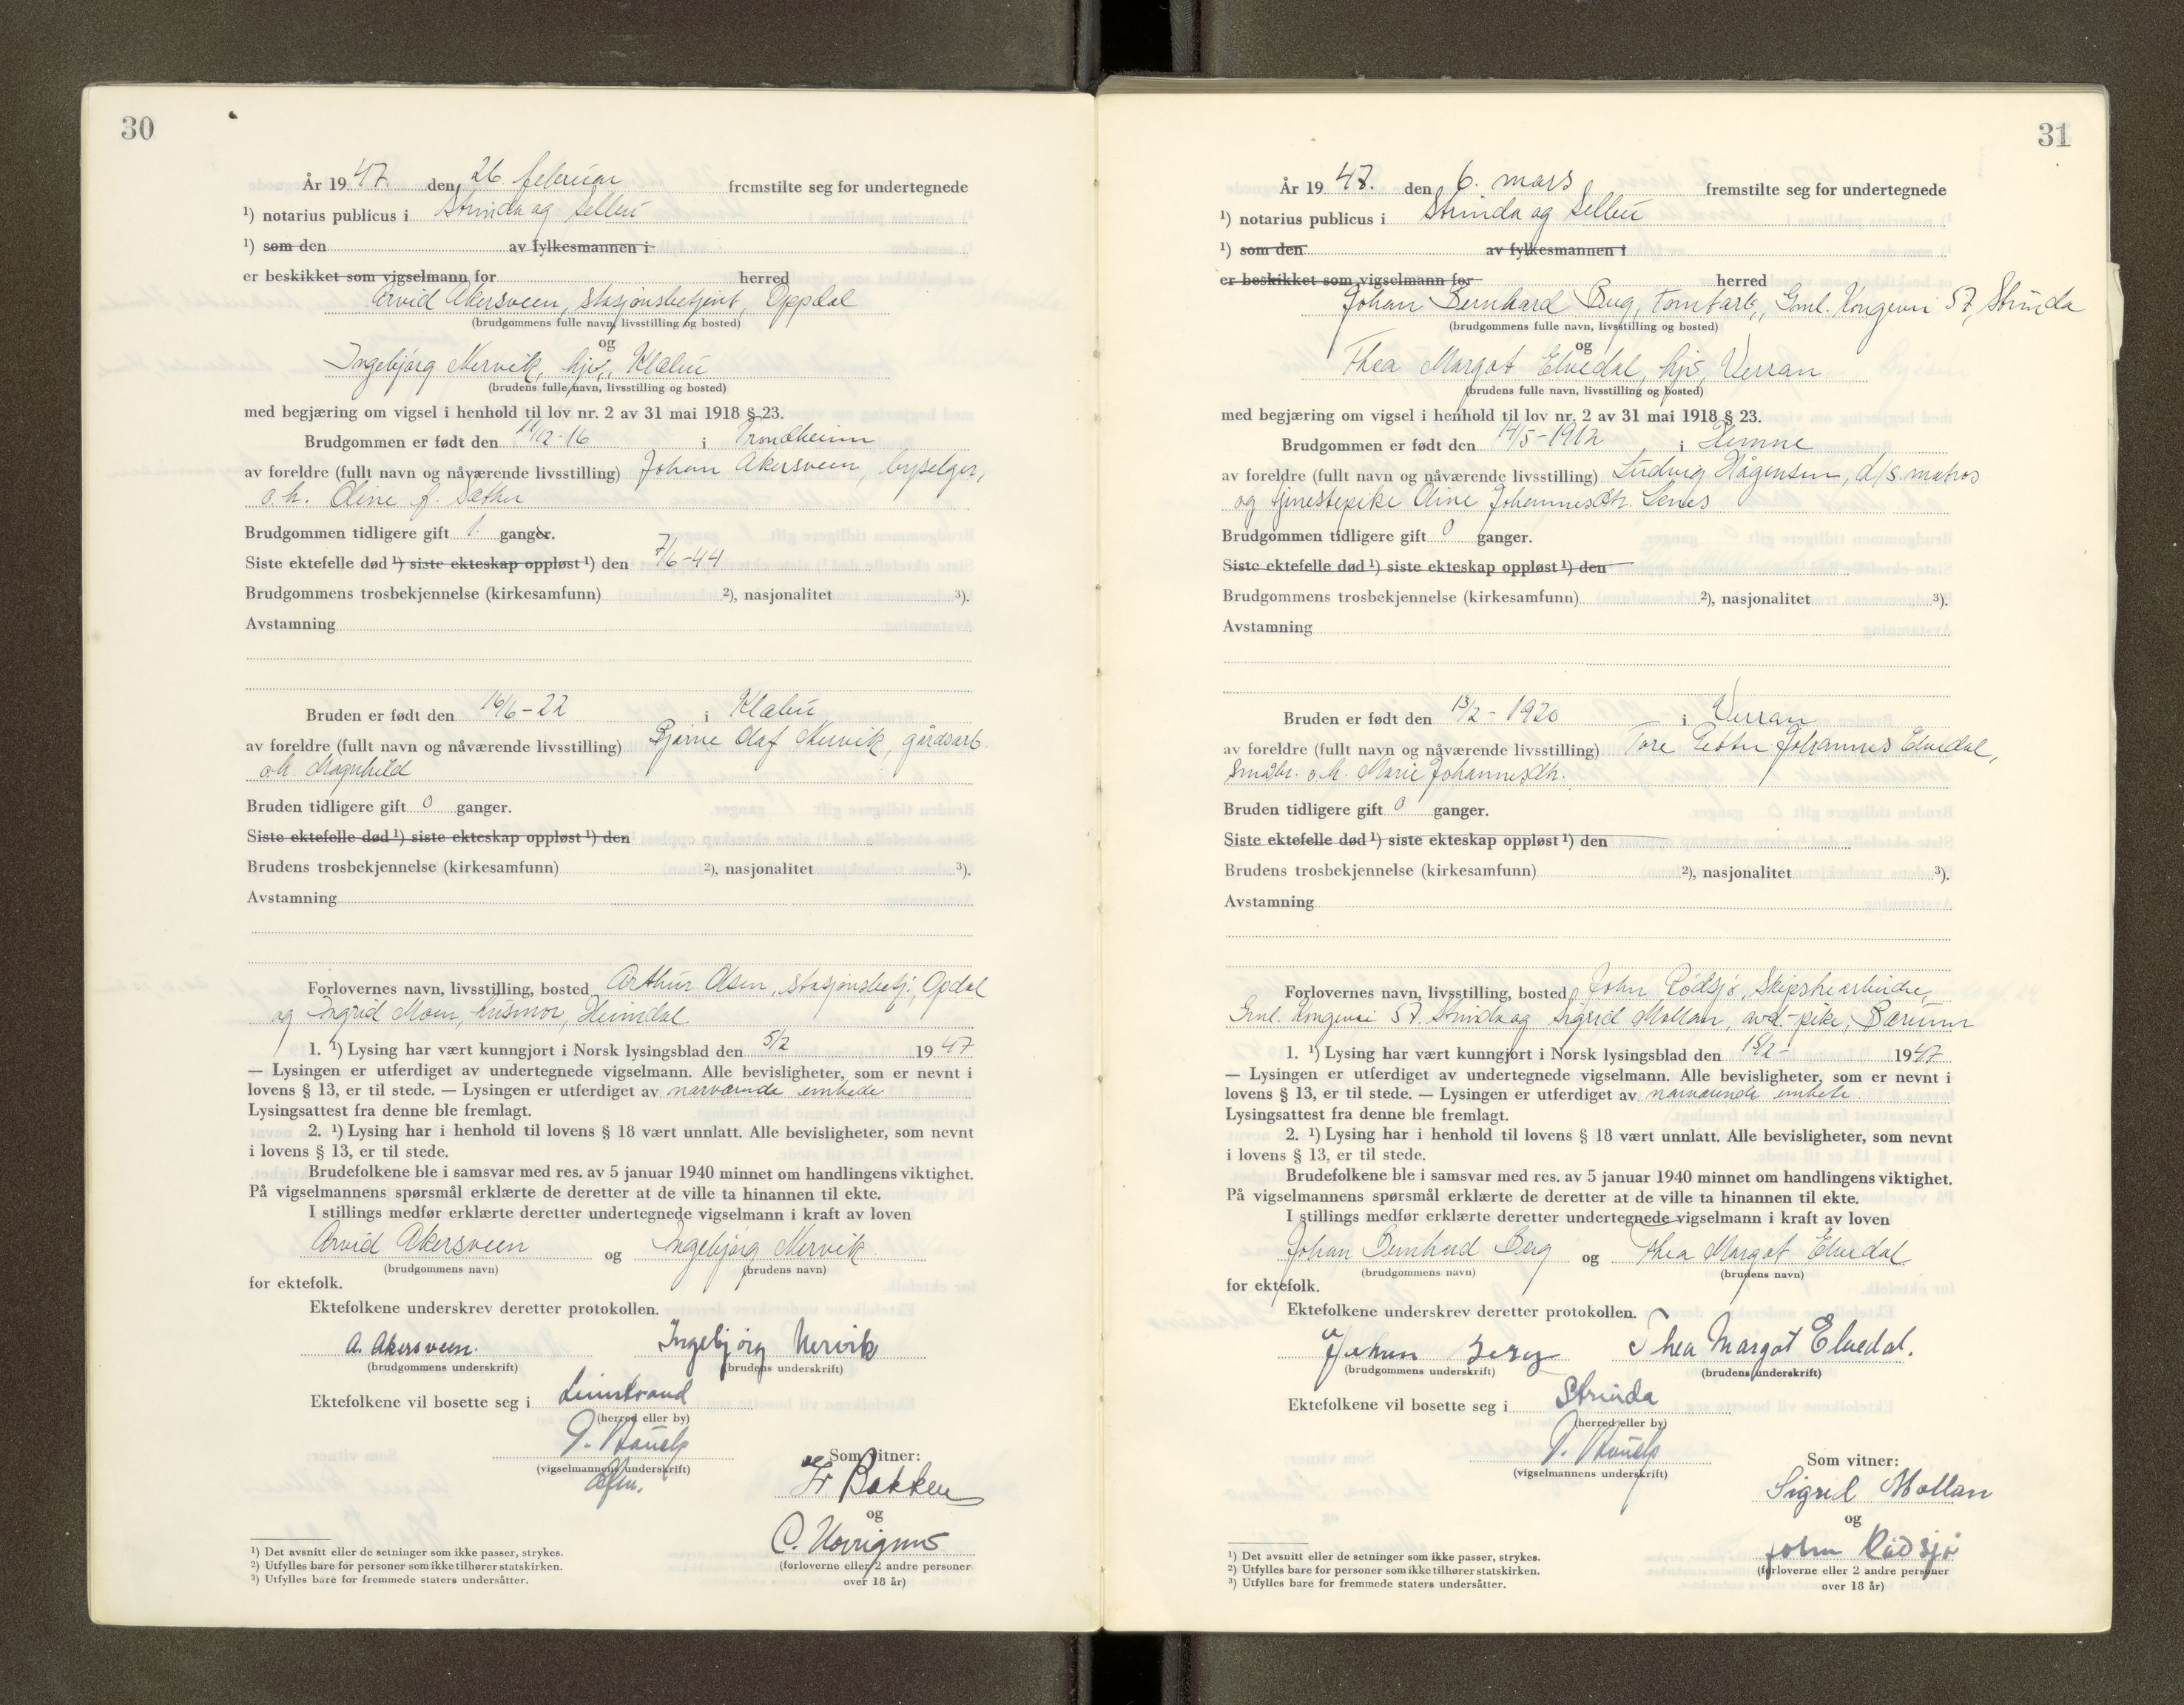 30
År 1947. den 26. februar fremstilte seg for undertegnede
¹) notarius publicus i Strinda og Selbu
¹) som den av fylkesmannen i
er beskikket som vigselmann for herred
Arvid Akersveen, stasjonsbetjent, Oppdal
(brudgommens fulle navn, livsstilling og bosted)
og
Ingebjørg Nervik, hjv., Klæbu
(brudens fulle navn, livsstilling og bosted)
med begjæring om vigsel i henhold til lov nr. 2 av 31 mai 1918 § 23.
Brudgommen er født den /12-16 i Trondheim
av foreldre (fullt navn og nåværende livsstilling) Johan Akersveen, byselger,
o.h. Oline f. Sæther
Brudgommen tidligere gift 1. ganger.
Siste ektefelle død ¹) siste ekteskap oppløst ¹) den 7/6-44
Brudgommens trosbekjennelse (kirkesamfunn) ²), nasjonalitet ³).
Avstamning
Bruden er født den 16/6-22 i Klæbu
av foreldre (fullt navn og nåværende livsstilling) Bjarne Olaf Nervik, gårdsarb.
o.h. Magnhild
Bruden tidligere gift 0 ganger.
Siste ektefelle død ¹) siste ekteskap oppløst ¹) den
Brudens trosbekjennelse (kirkesamfunn) ²), nasjonalitet ³).
Avstamning
Forlovernes navn, livsstilling, bosted Arthur Olsen, stasjonsbetj., Opdal
og Ingrid Moen, husmor, Heimdal
1. ¹) Lysing har vært kunngjort i Norsk lysingsblad den 5/2 1947
— Lysingen er utferdiget av undertegnede vigselmann. Alle bevisligheter, som er nevnt i
lovens § 13, er til stede. — Lysingen er utferdiget av nærværende embede
Lysingsattest fra denne ble fremlagt.
2. ¹) Lysing har i henhold til lovens § 18 vært unnlatt. Alle bevisligheter, som nevnt
i lovens § 13, er til stede.
Brudefolkene ble i samsvar med res. av 5 januar 1940 minnet om handlingens viktighet.
På vigselmannens spørsmål erklærte de deretter at de ville ta hinannen til ekte.
I stillings medfør erklærte deretter undertegnede vigselmann i kraft av loven
Arvid Akersveen og Ingebjørg Nervik
(brudgommens navn) (brudens navn)
for ektefolk.
Ektefolkene underskrev deretter protokollen.
A. Akersveen. Ingebjørg Nervik
(brudgommens underskrift) (brudens underskrift)
Ektefolkene vil bosette seg i Leinstrand
(herred eller by)
(vigselmannens underskrift)
Som vitner:
Bakken
og
C.
(forloverne eller 2 andre personer
over 18 år)
¹) Det avsnitt eller de setninger som ikke passer, strykes.
²) Utfylles bare for personer som ikke tilhører statskirken.
³) Utfylles bare for fremmede staters undersåtter.
31
År 1947. den 6. mars fremstilte seg for undertegnede
¹) notarius publicus i Strinda og Selbu
¹) som den av fylkesmannen i
er beskikket som vigselmann for herred
Johan Bernhard Berg, tomtarb., Gml. Kongevei 57, Strinda
(brudgommens fulle navn, livsstilling og bosted)
og
Thea Margot Elvedal, hjv, Verran
(brudens fulle navn, livsstilling og bosted)
med begjæring om vigsel i henhold til lov nr. 2 av 31 mai 1918 § 23.
Brudgommen er født den 14/5-1912 i Hemne
av foreldre (fullt navn og nåværende livsstilling) Ludvig Hågensen, d/s. matros
og tjenestepike Oline Johannesdtr. Lenes
Brudgommen tidligere gift 0 ganger.
Siste ektefelle død ¹) siste ekteskap oppløst ¹) den
Brudgommens trosbekjennelse (kirkesamfunn) ²), nasjonalitet ³).
Avstamning
Bruden er født den 13/2-1920 i Verran
av foreldre (fullt navn og nåværende livsstilling) Tore Petter Johannes Elvedal,
småbr. o.h. Marie Johannesdtr.
Bruden tidligere gift 0 ganger.
Siste ektefelle død ¹) siste ekteskap oppløst ¹) den
Brudens trosbekjennelse (kirkesamfunn) ²), nasjonalitet ³).
Avstamning
Forlovernes navn, livsstilling, bosted John Rödsjö, Skipstrearbeider,
Gml. Kongevei 57. Strinda og Sigrid Mollan, avd.-pike, Bærum
1. ¹) Lysing har vært kunngjort i Norsk lysingsblad den 15/2- 1947
— Lysingen er utferdiget av undertegnede vigselmann. Alle bevisligheter, som er nevnt i
lovens § 13, er til stede. — Lysingen er utferdiget av nærværende embete.
Lysingsattest fra denne ble fremlagt.
2. ¹) Lysing har i henhold til lovens § 18 vært unnlatt. Alle bevisligheter, som nevnt
i lovens § 13, er til stede.
Brudefolkene ble i samsvar med res. av 5 januar 1940 minnet om handlingens viktighet.
På vigselmannens spørsmål erklærte de deretter at de ville ta hinannen til ekte.
I stillings medfør erklærte deretter undertegnede vigselmann i kraft av loven
Johan Bernhard Berg og Thea Margot Elvedal
(brudgommens navn) (brudens navn)
for ektefolk.
Ektefolkene underskrev deretter protokollen.
Johan Berg Thea Margot Elvedal.
(brudgommens underskrift) (brudens underskrift)
Ektefolkene vil bosette seg i Strinda
(herred eller by)
(vigselmannens underskrift)
Som vitner:
Sigrid Mollan
og
John Rödsjö
(forloverne eller 2 andre personer
over 18 år)
¹) Det avsnitt eller de setninger som ikke passer, strykes.
²) Utfylles bare for personer som ikke tilhører statskirken.
³) Utfylles bare for fremmede staters undersåtter.